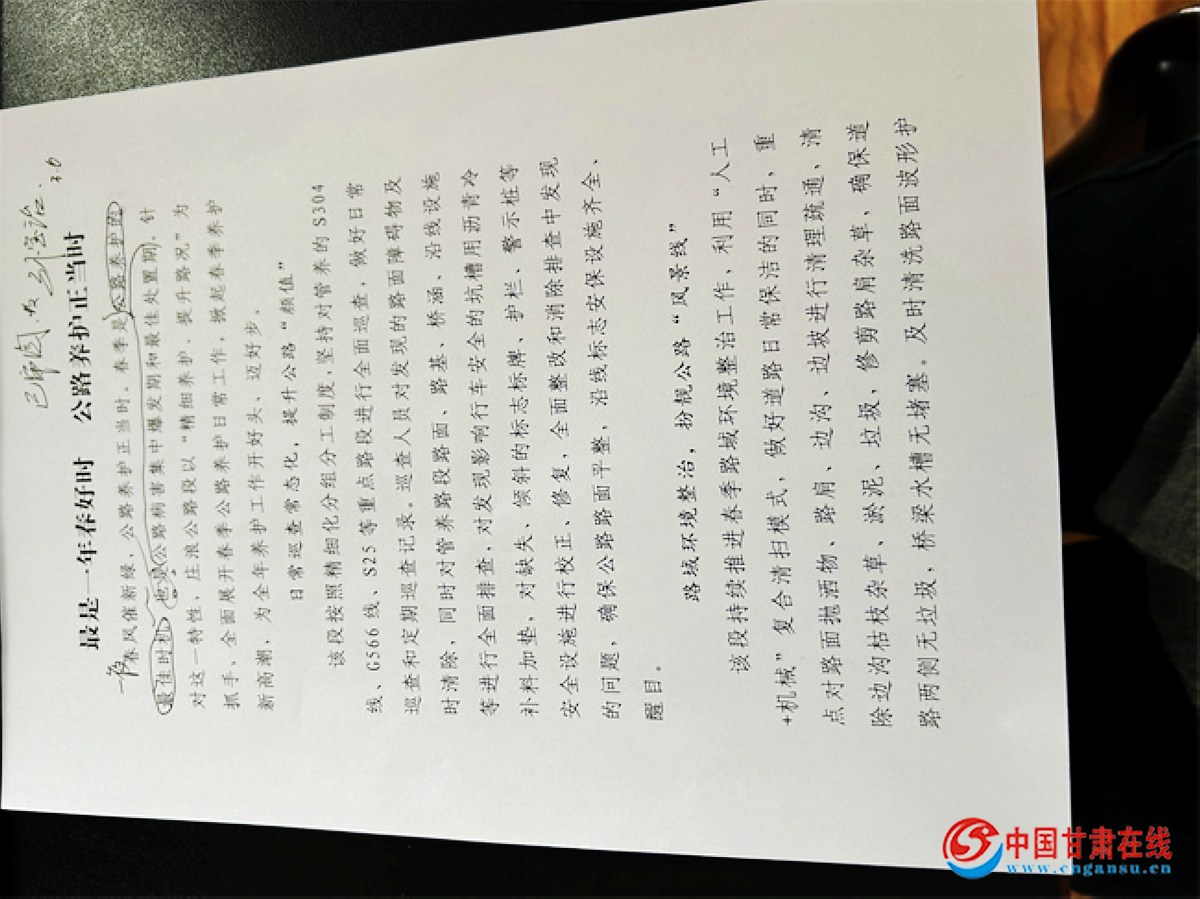 已审阅.
3.6
最是一年春好时 公路养护正当时
春风催新绿，公路养护正当时。春季是公路养护的
最佳时机，也是公路病害集中爆发期和最佳处置期。针
对这一特性，庄浪公路段以“精细养护、提升路况”为
抓手，全面展开春季公路养护日常工作，掀起春季养护
新高潮，为全年养护工作开好头、迈好步。
日常巡查常态化，提升公路“颜值”
该段按照精细化分组分工制度，坚持对管养的 S304
线、G566 线、S25 等重点路段进行全面巡查，做好日常
巡查和定期巡查记录。巡查人员对发现的路面障碍物及
时清除，同时对管养路段路面、路基、桥涵、沿线设施
等进行全面排查，对发现影响行车安全的坑槽用沥青冷
补料加垫，对缺失、倾斜的标志标牌、护栏、警示桩等
安全设施进行校正、修复，全面整改和消除排查中发现
的问题，确保公路路面平整，沿线标志安保设施齐全、
醒目。
路域环境整治，扮靓公路“风景线”
该段持续推进春季路域环境整治工作，利用“人工
+机械”复合清扫模式，做好道路日常保洁的同时，重
点对路面抛洒物、路肩、边沟、边坡进行清理疏通，清
除边沟枯枝杂草、淤泥、垃圾，修剪路肩杂草，确保道
路两侧无垃圾，桥梁水槽无堵塞。及时清洗路面波形护
中国甘肃在线
www.cngansu.cn